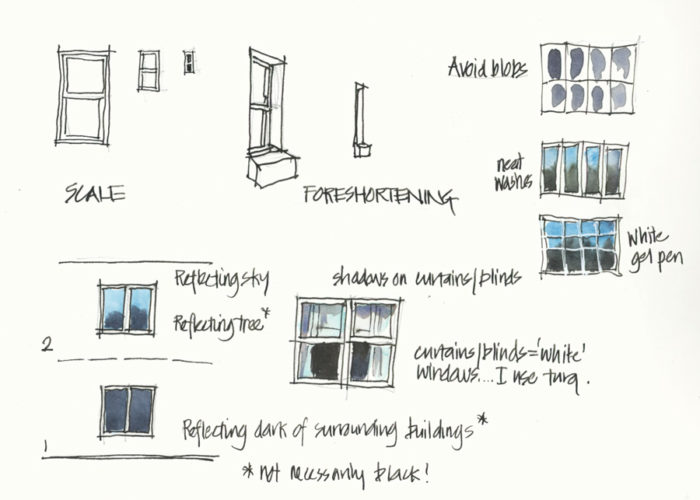 Avoid blobs
neat
washes
SCALE
FORESHORTENING
White
gel pen
Reflecting sky
shadows on curtains/blinds
Reflecting tree*
2
curtains/blinds='white'
windows....I use turq.
Reflecting dark of surrounding buildings*
1
*not necessarily black!